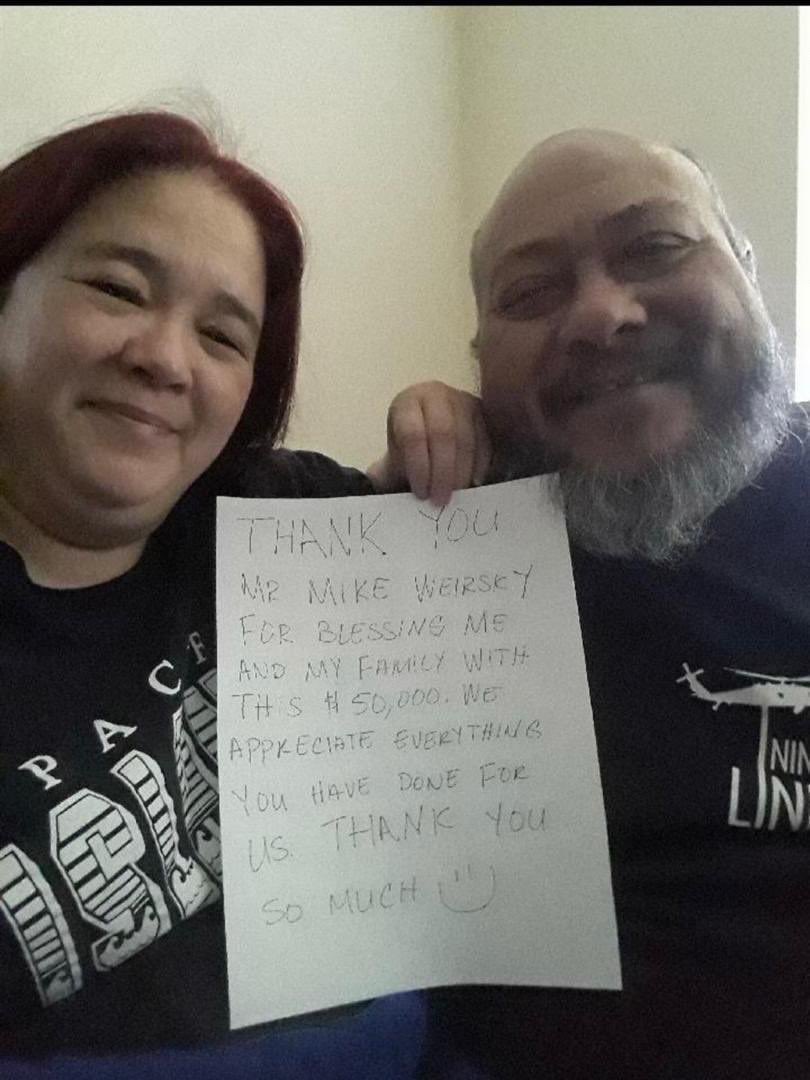 THANK YOU
MR MIKE WEIRSKY
FOR BLESSING ME
AND MY FAMILY WITH
THIS $ 50,000. WE
APPRECIATE EVERYTHING
YOU HAVE DONE FOR
US. THANK YOU
SO MUCH
PACF
NIN
LIN